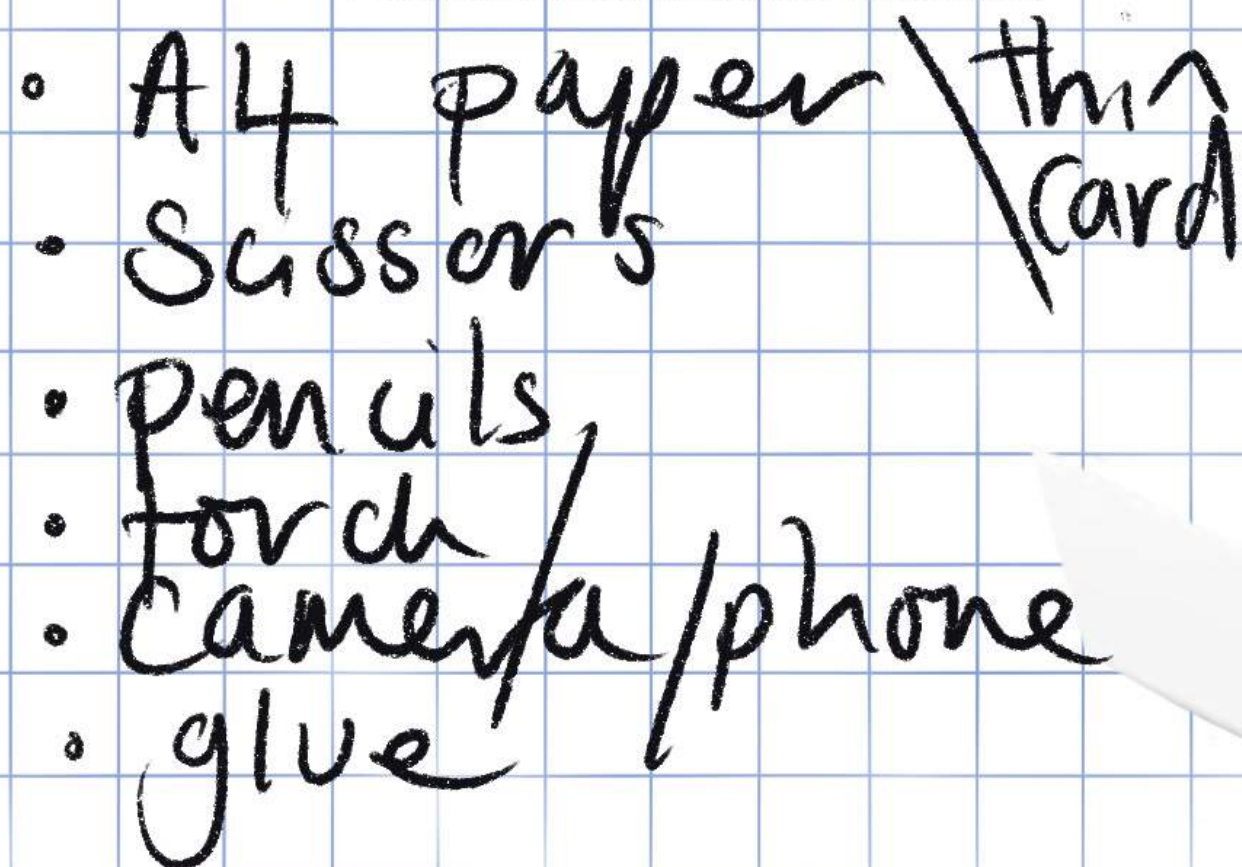 • A4 paper \ thin
card
• Scissors
• pencils
• torch /
• camera/phone
• glue